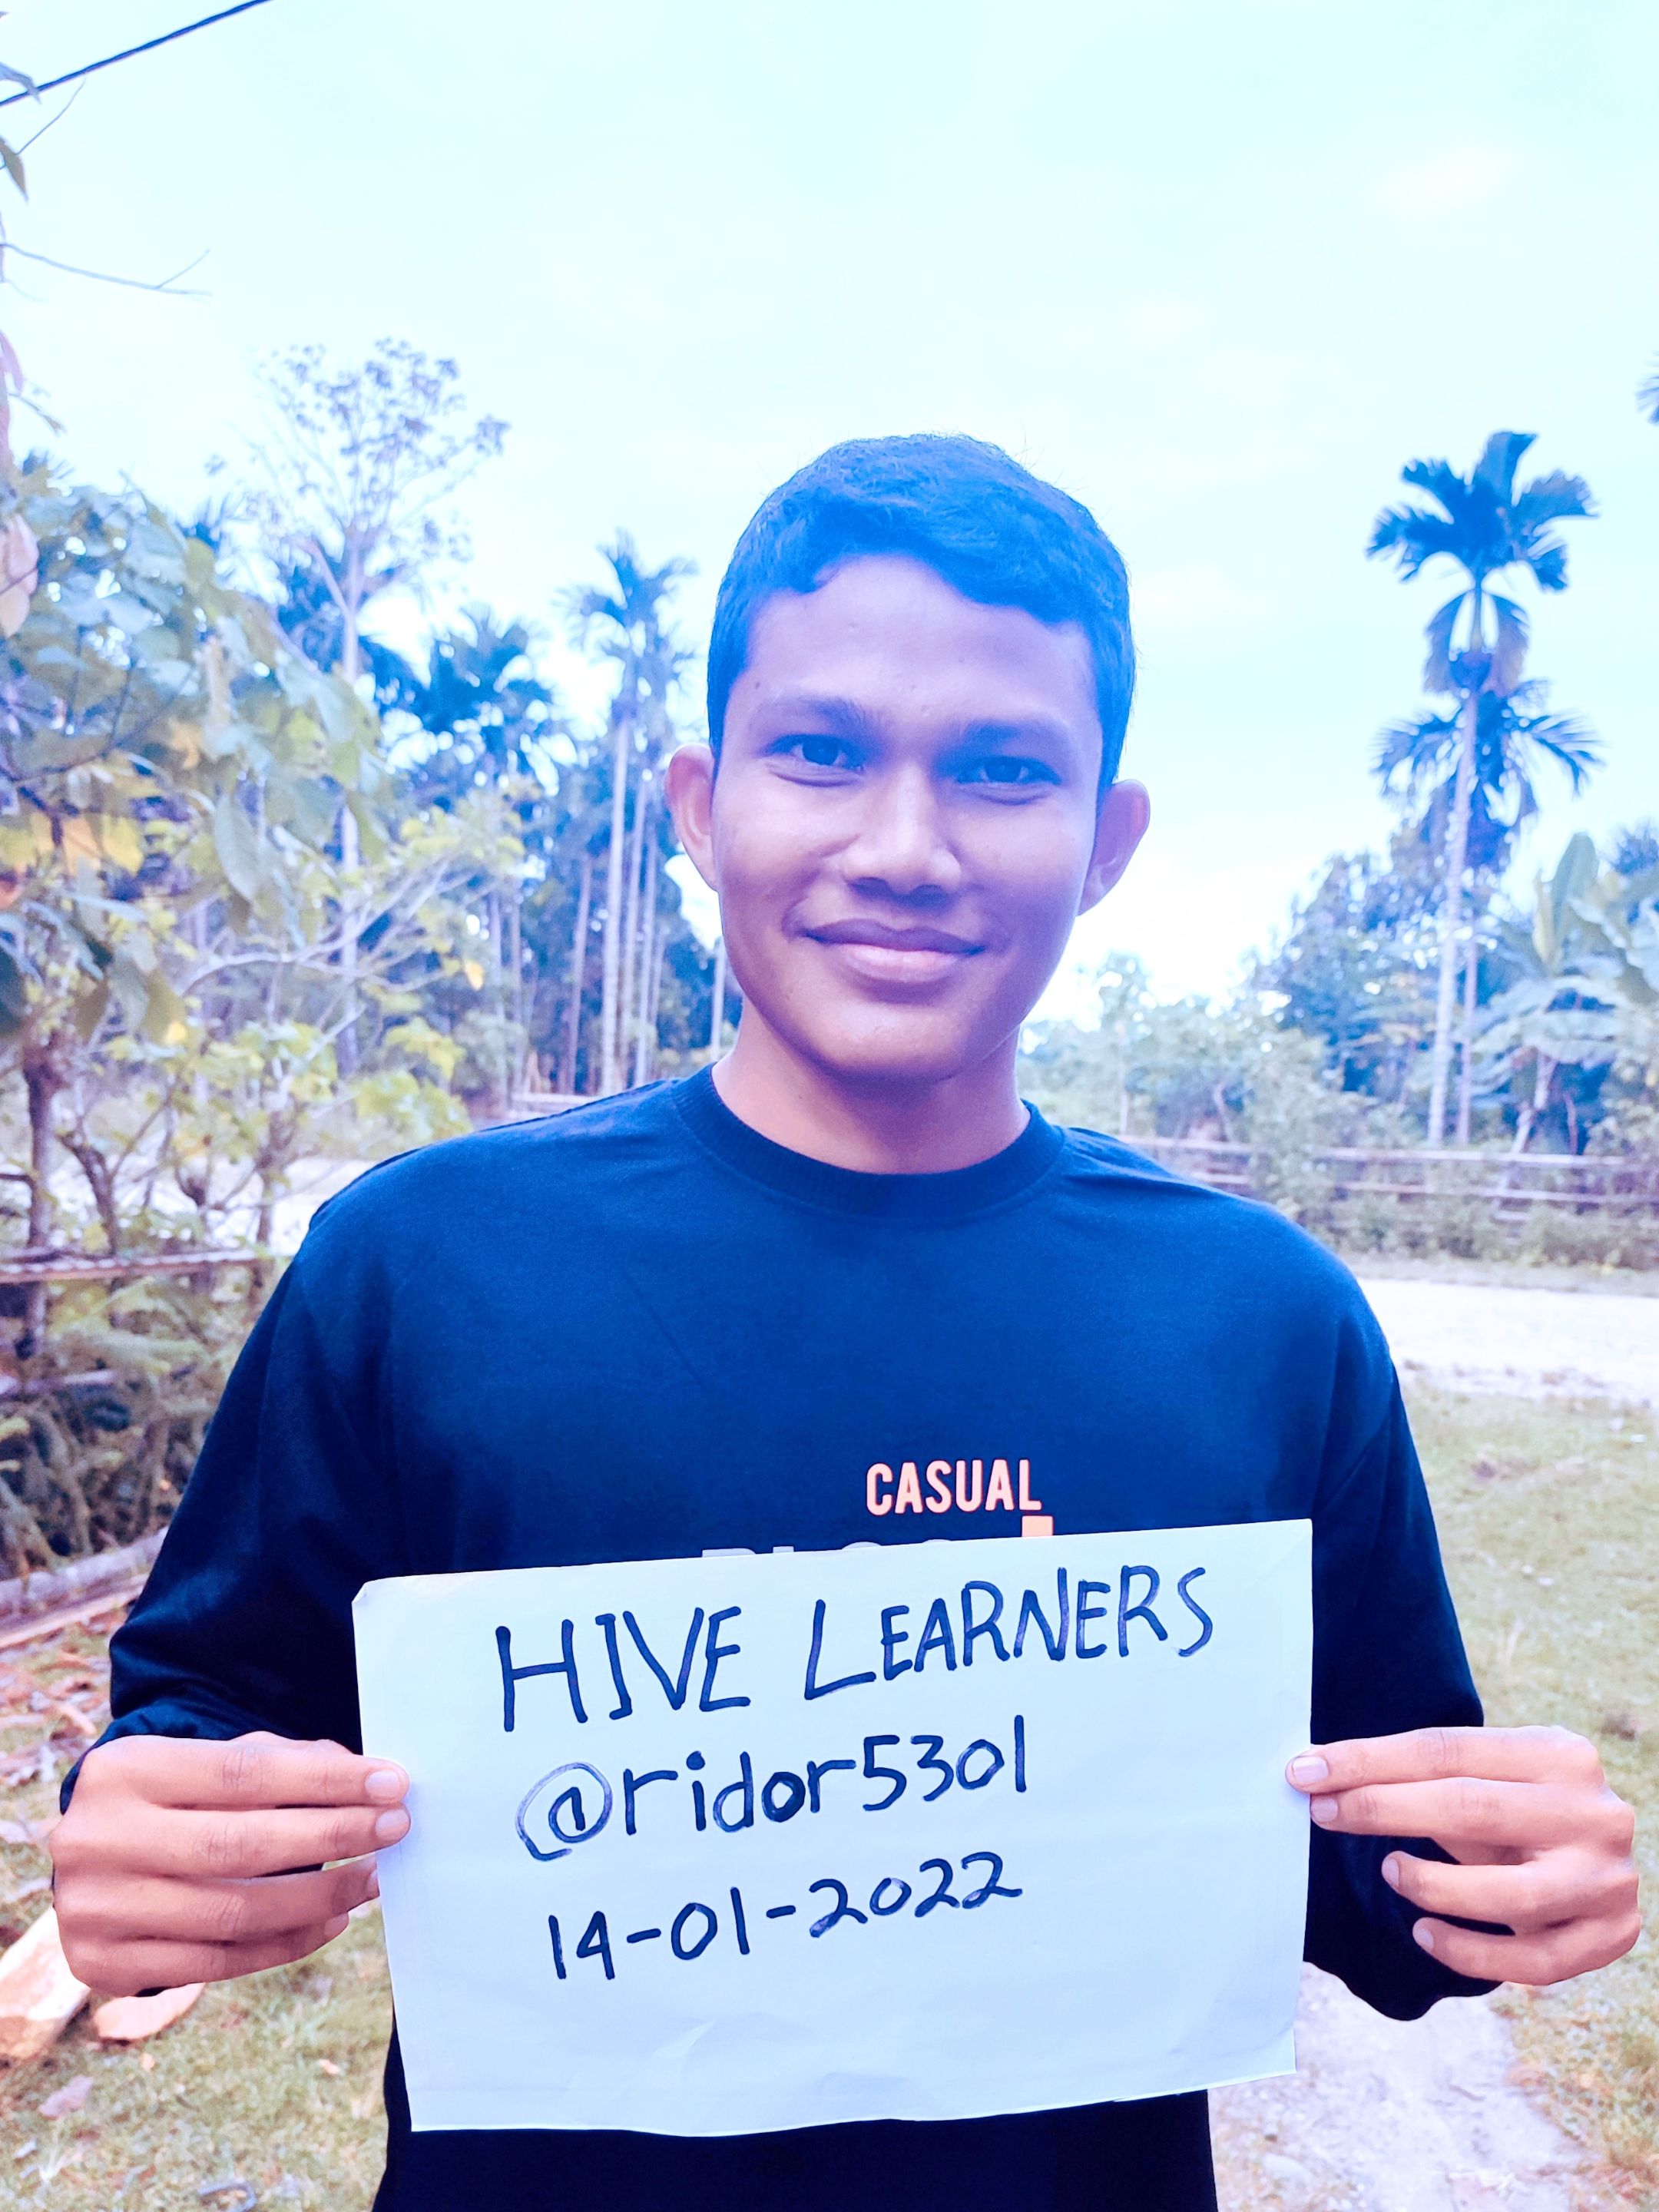 CASUAL
HIVE LEARNERS
@ridor5301
14-01-2022